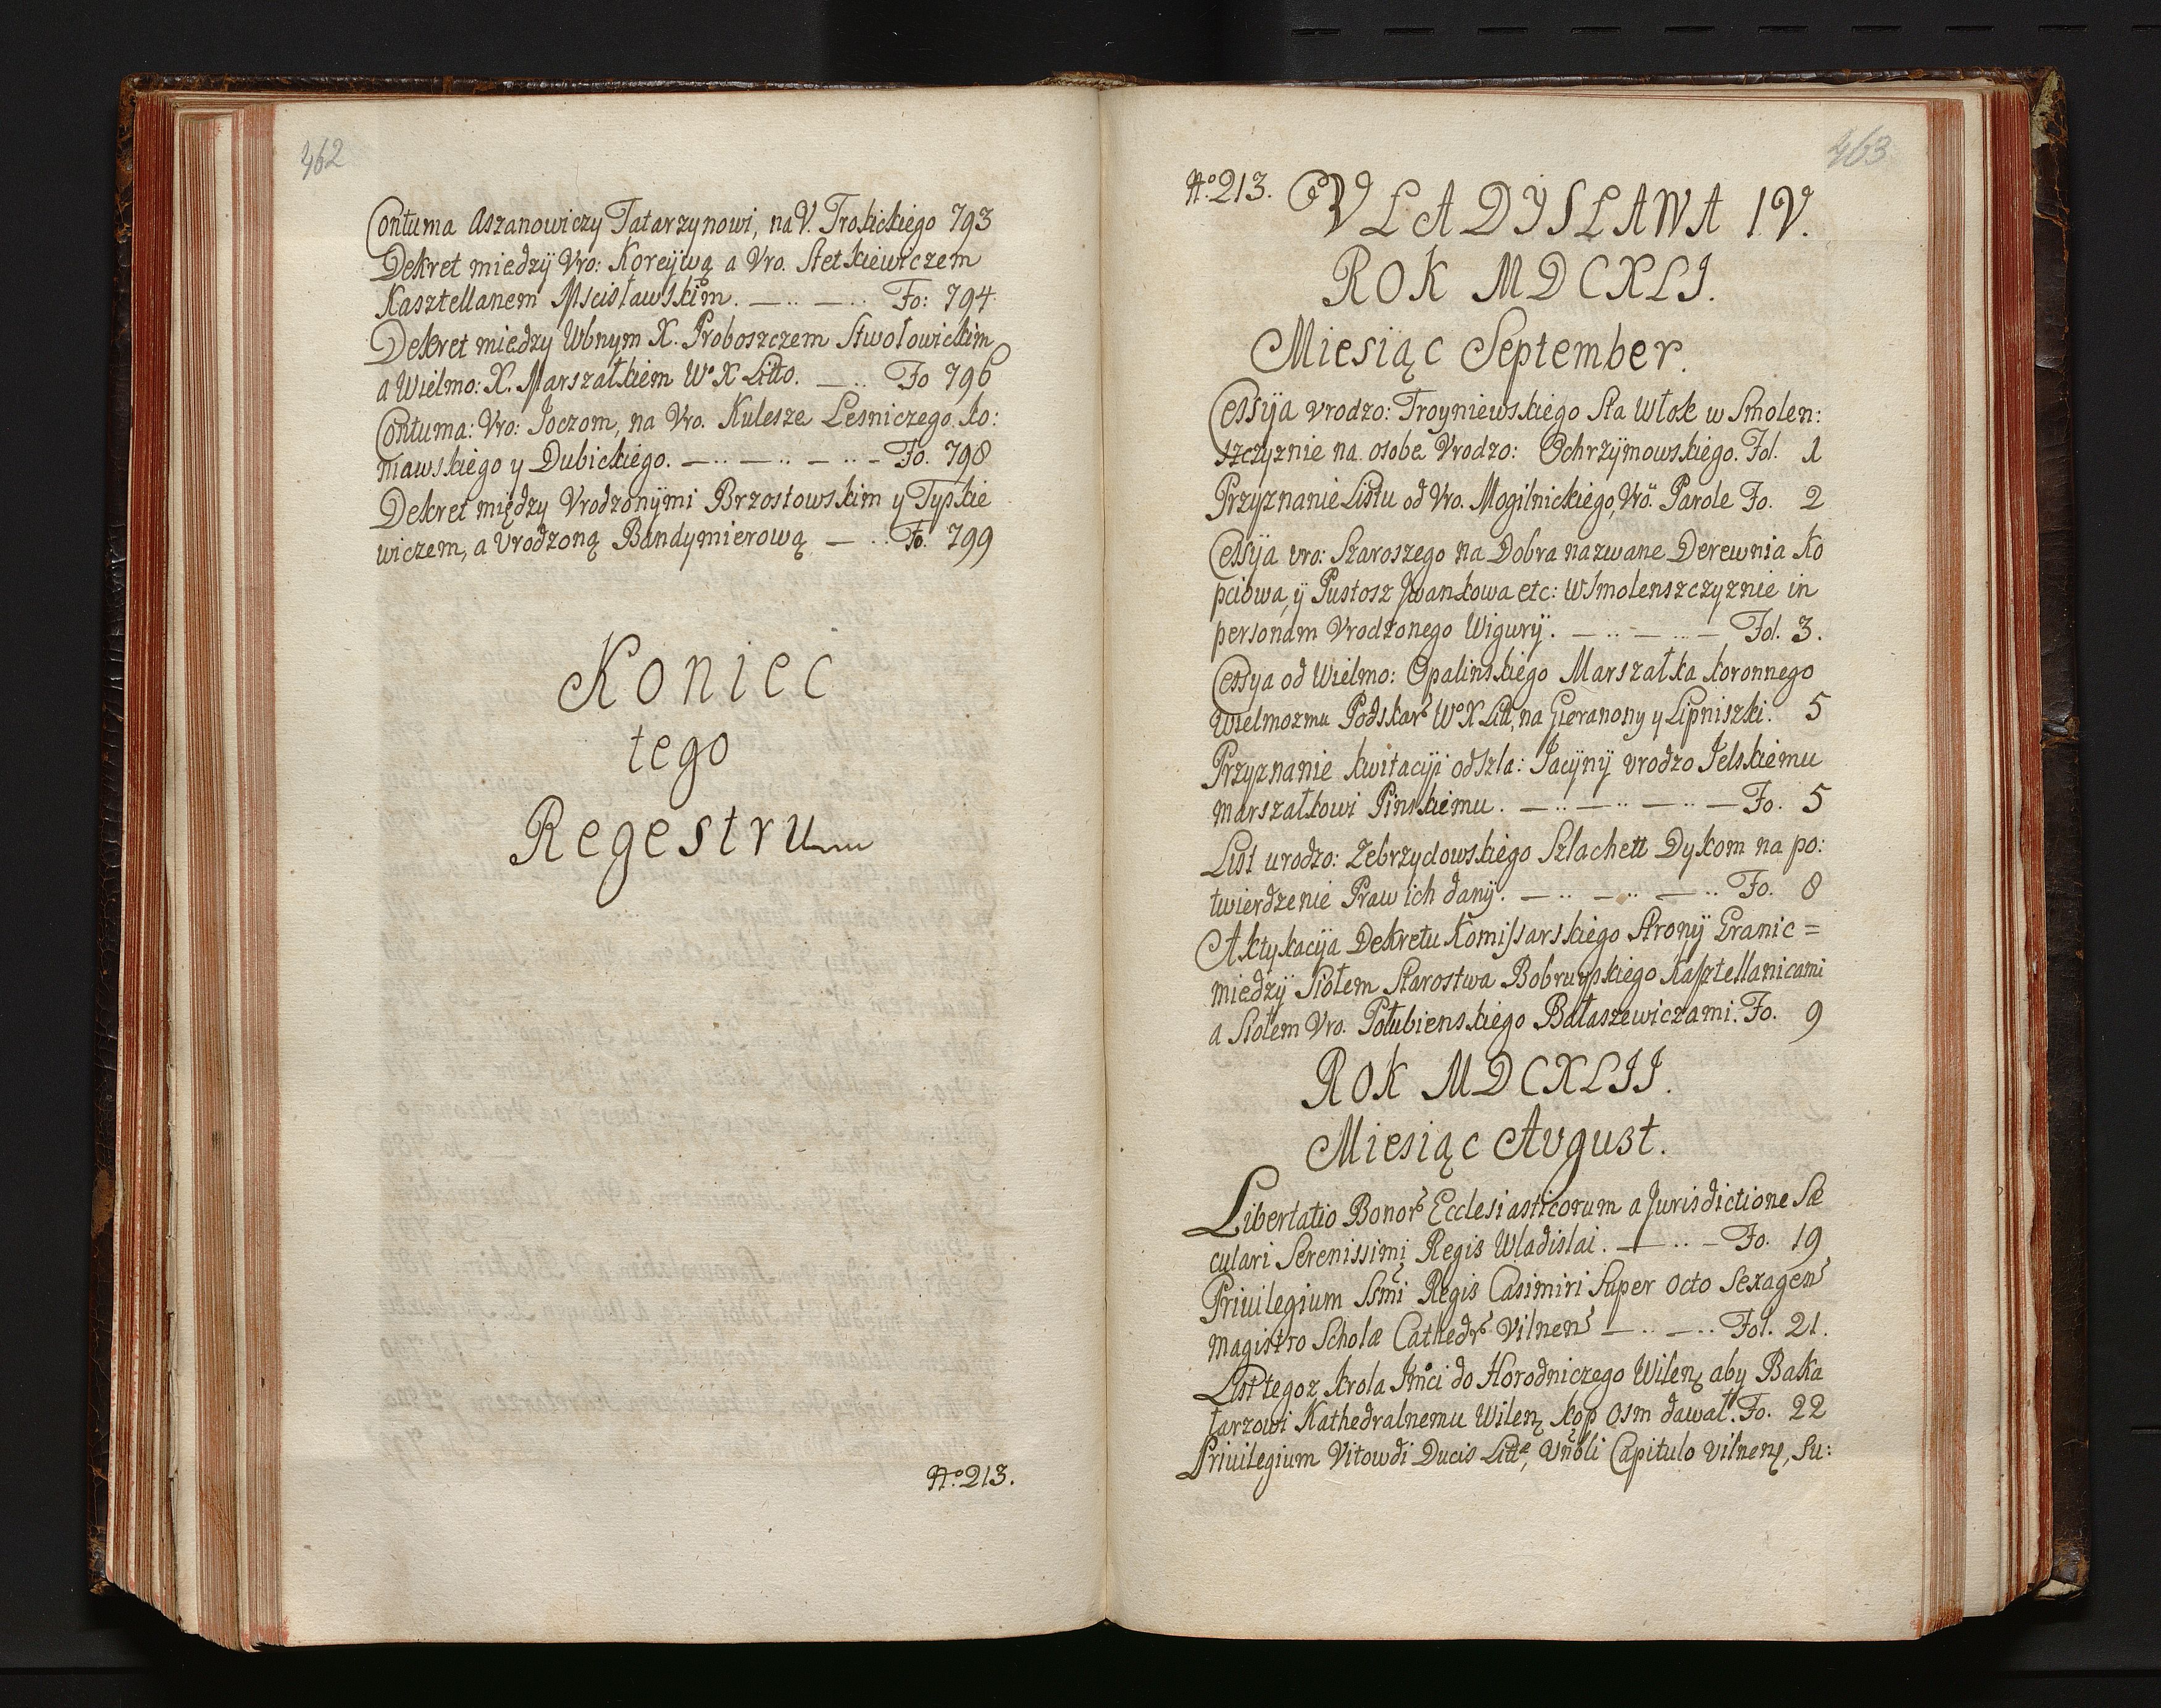 462
Contuma Aszanowiczy Tatarzynowi, na V. Trokickiego 793
Dekret miedzÿ Vro: Koreÿwą a Vro. Stetkiewiczem
Kasztellanem Mscisławskim. — ·· — ·· Fo: 794
Dekret miedzy Wbnym X. Proboszczem Stwołowickim
a Wielmo: X. Marszałkiem Wº X Litto. — ·· Fo 796
Contuma: Vro: Joczom, na Vro. Kulesze Lesniczego ko:
niawskiego y Dubickiego. — ·· — ·· — ·· - Fo. 798
Dekret między Vrodzonÿmi Brzostowskim y Typskie
wiczem, a Vrodzoną Bandymierową — ·· Fo. 799
Koniec
tego
Regestru
Nº. 213.
463
Nº. 213. VLADYSLAWA IV.
ROK MDCXLI.
Miesiąc September.
Cessÿa Vrodzo: Troyniewskiego Sta Włok w Smolen:
szczyznie na osobe Vrodzo: Ochrzÿmowskiego. Fol. 1
Przyznanie Listu od Vro. Mogilnickiego, Vrö. Parole Fo. 2
Cessÿa vro: Szaroszego na Dobra nazwane Derewnia Ko
pciowa, ÿ Pustosz Jwankowa etc: w Smolenszczyznie in
personam Vrodzonego Wigurÿ. — ·· — ·· — Fol. 3.
Cessya od Wielmo: Opalinskiego Marszałka koronnego
Wielmozmu Podskar Wº X Litt, na Gieranony y Lipniszki. 5
Przyznanie kwitacÿi od szla: Jacÿnÿ vrodzo Jelskiemu
Marszałkowi Pinskiemu. — ·· — ·· — ·· — Fo. 5
List urodzo: Zebrzydowskiego Szlachett Dykom na po:
twierdzenie Praw ich danÿ. — ·· — ·· — ·· Fo. 8
Aktykacÿa Dekretu Komissarskiego Stronÿ Granic =
miedzÿ Siołem Starostwa Bobruyskiego Kasztellanicami
a Siołem Vro. Połubienskiego Bałaszewiczami. Fo. 9
ROK MDCXLII.
Miesiąc Avgust.
Libertatio Bonor Ecclesiasticorum a Jurisdictione Sæ
culari Serenissimi Regis Wladislai. — ·· — Fo. 19
Priuilegium Ssmi Regis Casimiri Super octo Sexagen
Magistro Scholæ Cathedr Vilnen — ·· — ·· Fol. 21.
List tegoz Krola Jmci do Horodniczego Wilen aby Baka
larzowi Kathedralnemu Wilen kop Osm dawał. Fo. 22
Priuilegium Vitowdi Ducis Litt, Vnbli Capitulo vilnen, Su: